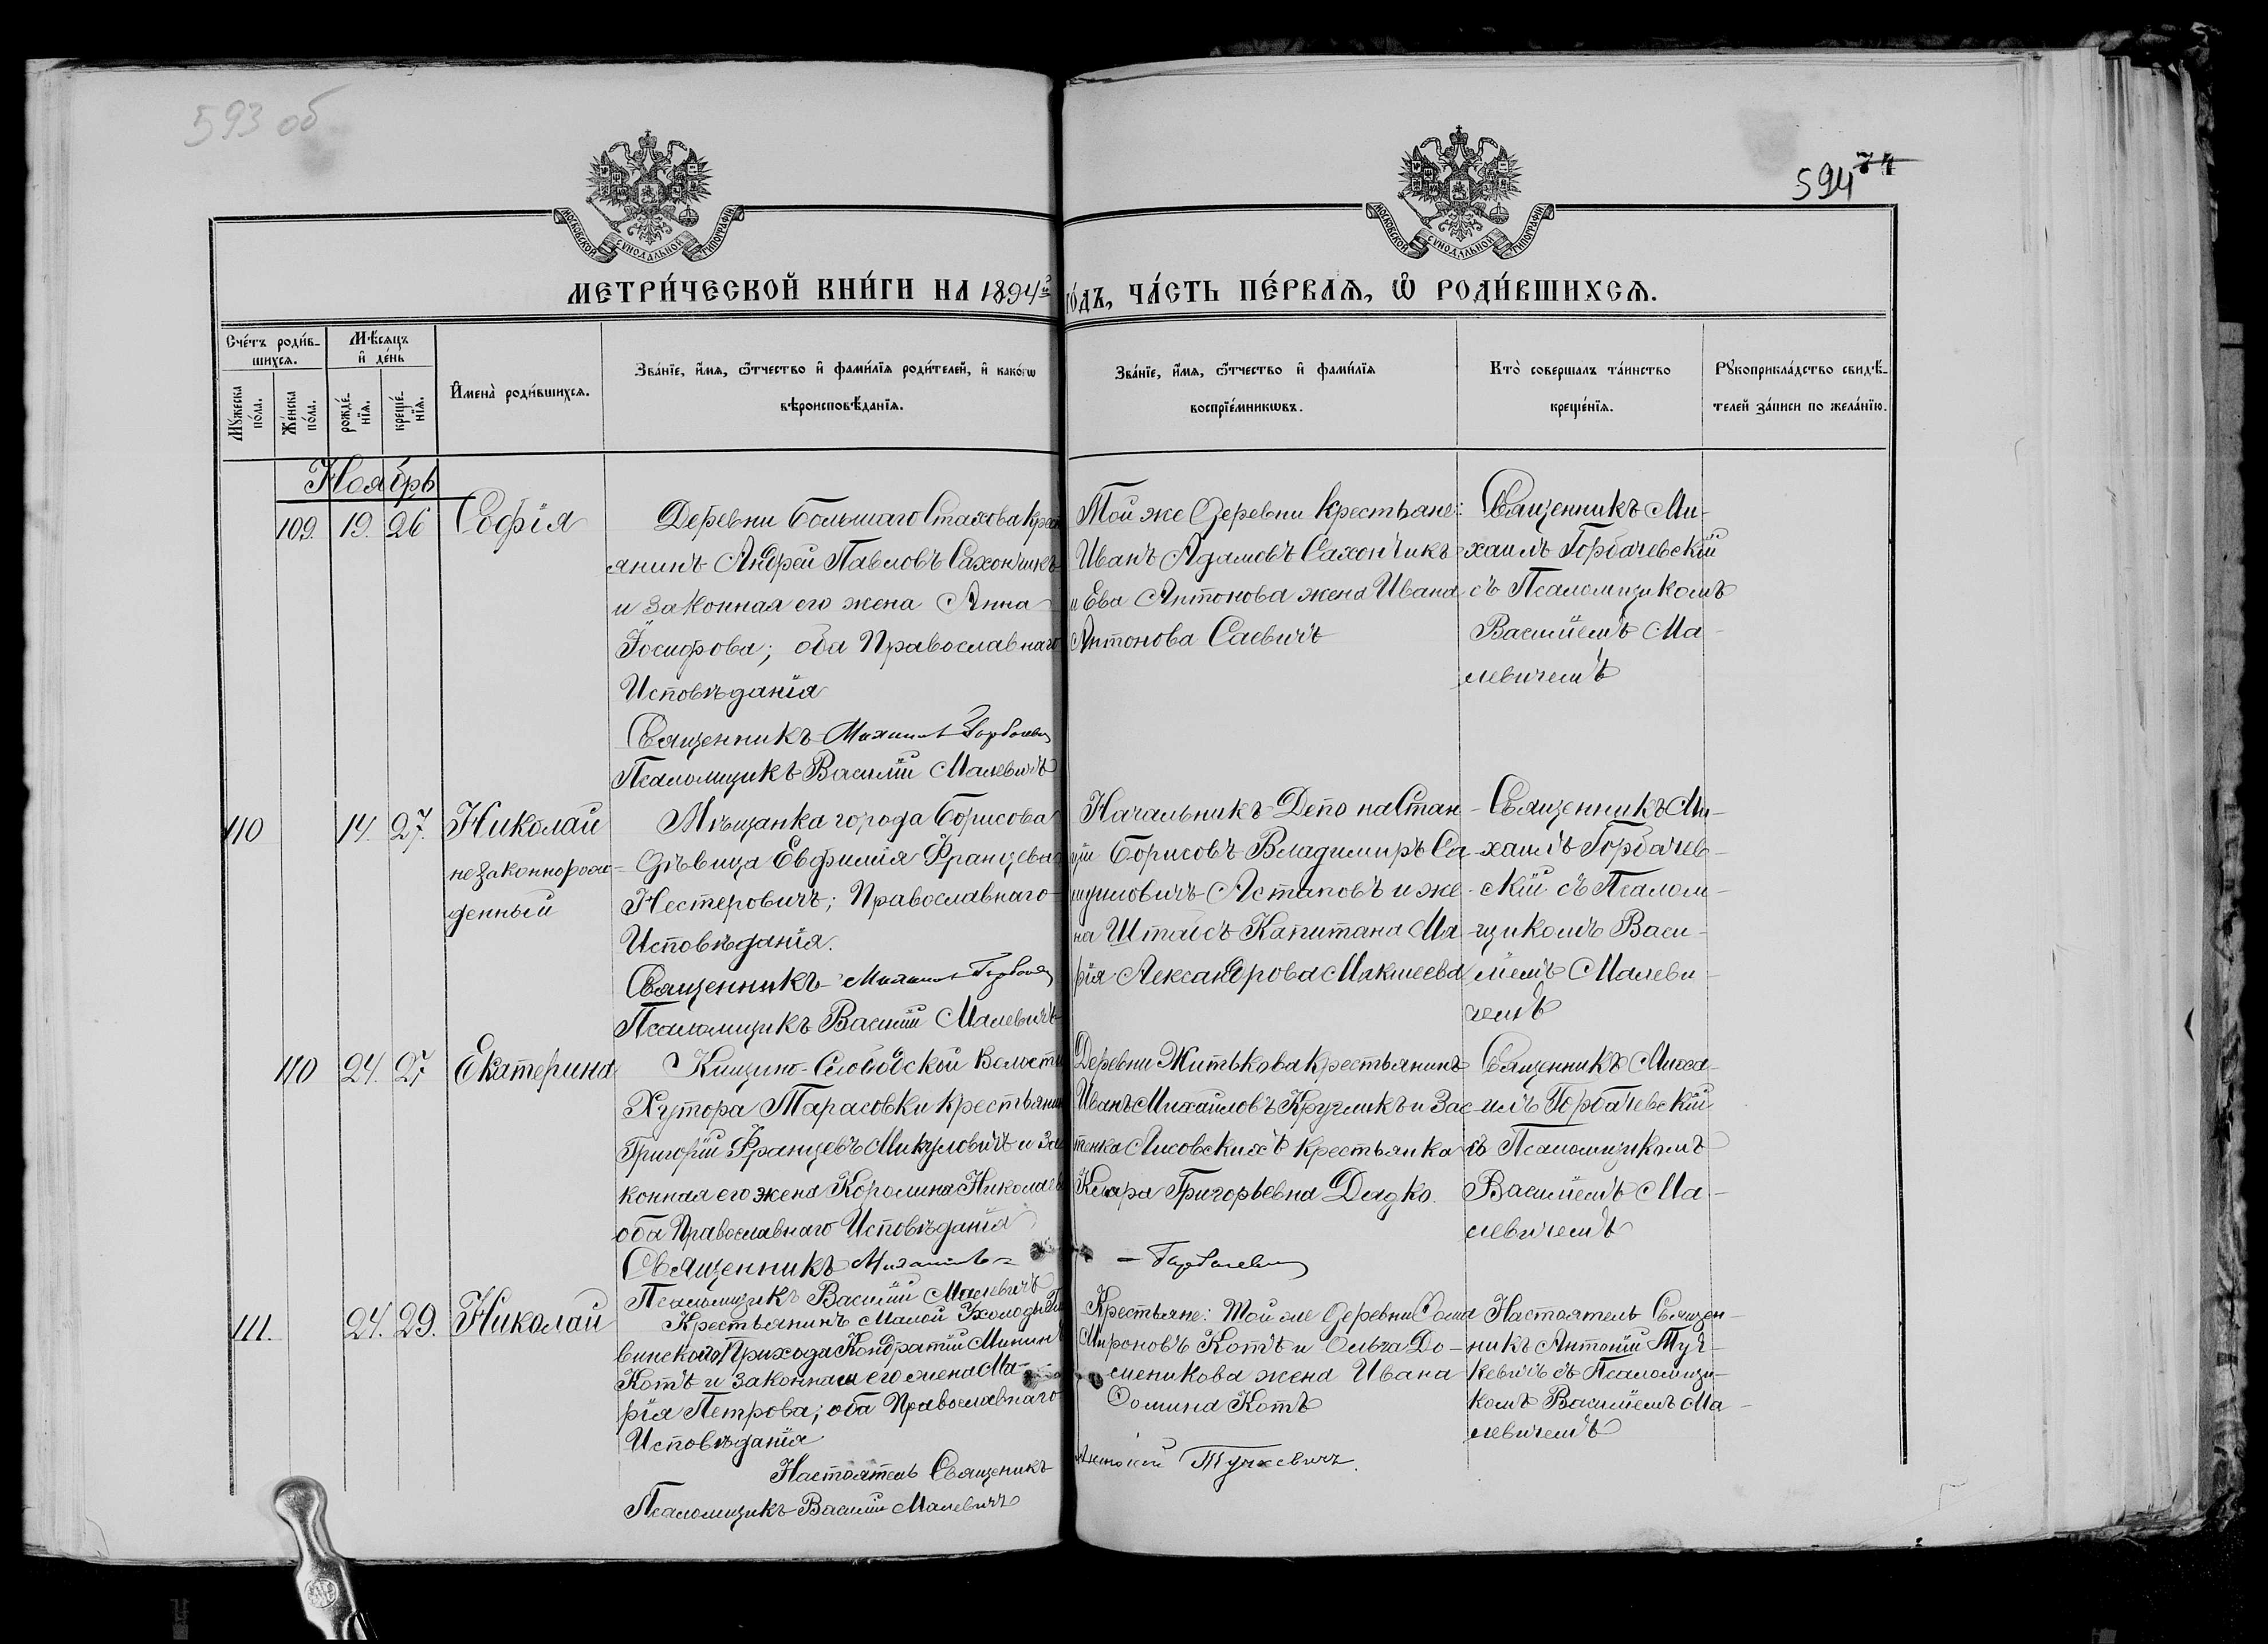 593 об
594 74
МОСКОВСКОЙ СѴНОДАЛЬНОЙ ТИПОГРАФІИ
МОСКОВСКОЙ СѴНОДАЛЬНОЙ ТИПОГРАФІИ
МЕТРИ́ЧЕСКОЙ КНИ́ГИ НА 1894й го́дъ, ЧА́СТЬ ПЕ́РВАѦ, Ѡ҆ РОДИ́ВШИХСѦ.
Сче́тъ роди́в-
шихсѧ.
Мꙋ́жеска по́ла.
Же́нска по́ла.
Мѣ́сѧцъ
и҆ де́нь
рожде́-
нїѧ.
креще́-
нїѧ.
И҆мена̀ роди́вшихсѧ.
Зва́нїе, и҆́мѧ, ѻ҆́тчество и҆ фами́лїѧ роди́телей, и҆ како́гѡ
вѣроисповѣ́данїѧ.
Зва́нїе, и҆́мѧ, ѻ҆́тчество и҆ фами́лїѧ
воспрїе́мникѡвъ.
Кто̀ совершалъ та́инство
креще́нїѧ.
Рꙋкоприкла́дство свидѣ́-
телей за́писи по жела́нїю.
Ноябрь
109. 19. 26 Софія
Деревни Большаго Стахова крест
янинъ Андрей Павловъ Сахончикъ
и законная его жена Анна
Іосифова; оба Православнаго
Исповѣданія
Священникъ Михаилъ Горбачевск
Псаломщикъ Василій Малевичъ
Той же Деревни крестьяне:
Иванъ Адамовъ Сахончикъ
и Ева Антонова жена Ивана
Антонова Саевичъ
Священникъ Ми-
хаилъ Горбачевскій
съ Псаломщикомъ
Василіемъ Ма-
левичемъ
110 14. 27. Николай
незаконнорож-
денный
Мѣщанка города Борисова
дѣвица Евфимія Францева
Нестеровичъ; Православнаго
Исповѣданія.
Священникъ Михаилъ Горбачев
Псаломщикъ Василій Малевичъ
Начальникъ Депо на Стан-
ціи Борисовъ Владимиръ Са-
муиловичъ Астаповъ и же-
на Штабсъ Капитана Ма-
рія Александрова Макшеева
Священникъ Ми-
хаилъ Горбачев-
скій съ Псалом-
щикомъ Васи-
ліемъ Малеви-
чемъ
110 24. 27 Екатерина
Кищино-Слободской Волости
Хутора Тарасовки крестьянин
Григорій Францевъ Микуловичъ и за
конная его жена Королина Николаева
оба Православнаго Исповѣданія
Священникъ Михаилъ
Горбачевскій
Псаломщикъ Василій Малевичъ
Деревни Житькова крестьянинъ
Иванъ Михайловъ Кругликъ и Зас-
тенка Лисовскихъ крестьянка
Клара Григорьевна Дядко.
Священникъ Миха-
илъ Горбачевскій
съ Псаломщикомъ
Василіемъ Ма-
левичемъ
111. 24. 29. Николай
Крестьянинъ Малой Ухолоды
винскаго Прихода Кондратій Мининъ
Котъ и законная его жена Ма-
рія Петрова; оба Православнаго
Исповѣданія
Настоятель Священикъ
Антоній Тучкевичъ.
Псаломщикъ Василій Малевичъ
Крестьяне: Той же Деревни Фома
Мироновъ Котъ и Ольга До-
меникова жена Ивана
Фомина Котъ
Настоятель Священ-
никъ Антоній Туч-
кевичъ съ Псаломщи-
комъ Василіемъ Ма-
левичемъ